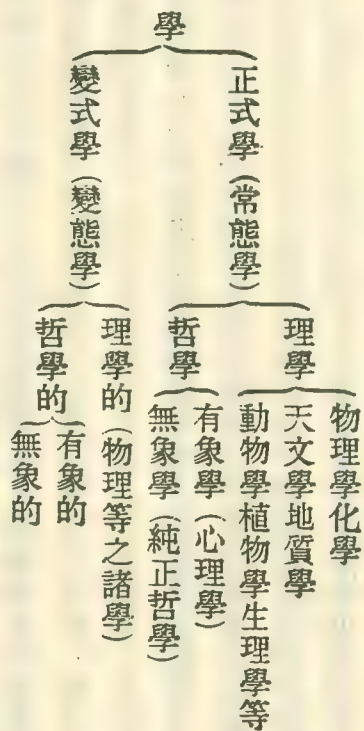 學
正式學（常態學）
理學
物理學化學
天文學地質學
動物學植物學生理學等
哲學
有象學（心理學）
無象學（純正哲學）
變式學（變態學）
理學的（物理等之諸學）
哲學的
有象的
無象的